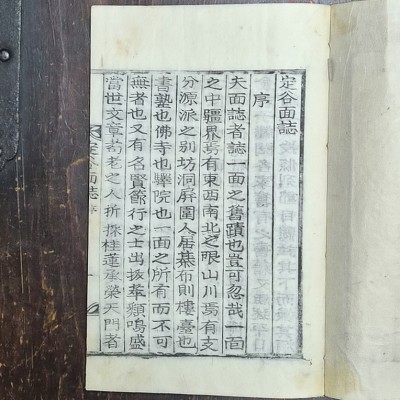 定谷面誌
序
夫面誌者誌一面之舊蹟也豈可忽哉一面
之中疆界焉有東西南北之限山川焉有支
分源派之別坊洞屏圍人居棊布則樓臺也
書塾也佛寺也驛院也一面之所有而不可
無者也又有名賢節行之士出拔萃類鳴盛
當世文章耆老之人折採桂蓮承榮天門者
定谷面誌 序